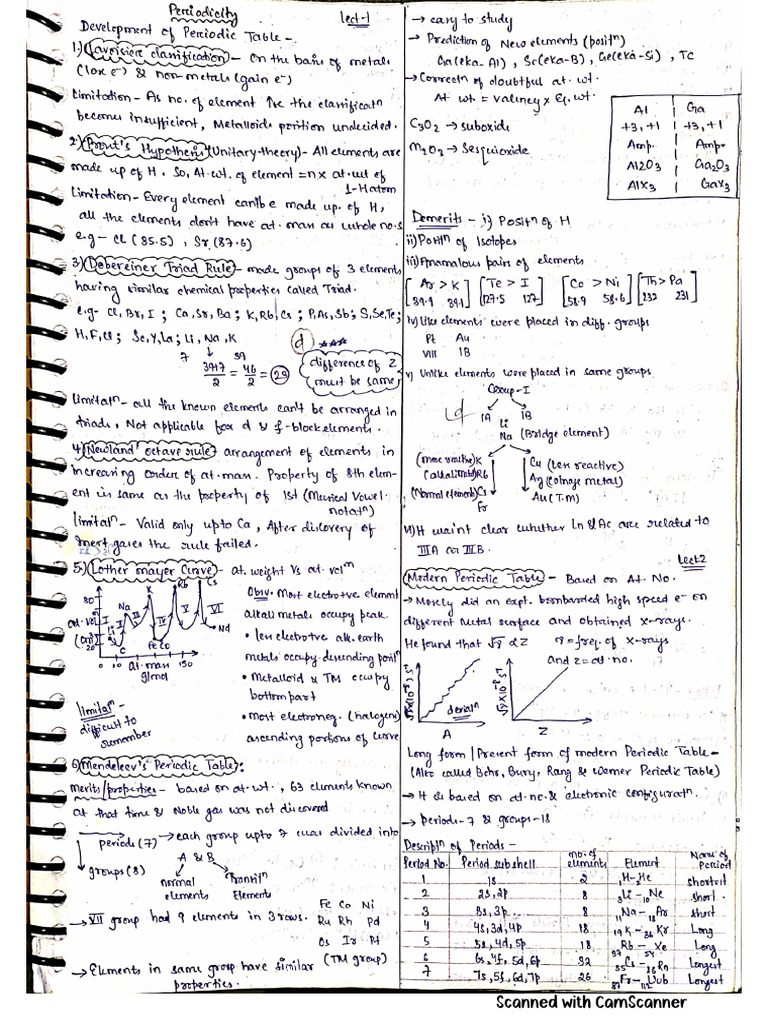 Periodicity Lect-1
Development of Periodic Table -.
1.) Lavoisier classification - On the basis of metals
(lox e⁻) & non-metals (gain e⁻)
Limitation - As no. of element ↑se the classificatⁿ
becomes insufficient, Metalloids position undecided.
2) Prout's Hypothesis (Unitary theory) - All elements are
made up of H. So, At. wt. of element = n x at. wt of
1-H atom
Limitation - Every element can't be made up of H,
all the elements don't have at. mass as whole no.s
e.g - Cl (35.5), Sr (87.6)
3.) Dobereiner Triad Rule - made groups of 3 elements
having similar chemical properties called Triad.
e.g - Cl, Br, I ; Ca, Sr, Ba ; K, Rb, Cs ; P, As, Sb ; S, Se, Te ;
H, F, Cl ; Sc, Y, La ; Li, Na, K
7 39
39+7/2 = 46/2 = 23
d ***
difference of Z
must be same
limitatⁿ - all the known elements can't be arranged in
triads, Not applicable for d & f-block elements.
4.) Newland' octave rule - arrangement of elements in
increasing order of at. mass. Property of 8th elem-
ent is same as the property of 1st (Musical Vowel
notatⁿ)
limitatⁿ - Valid only upto Ca, After discovery of
inert gases the rule failed.
5.) Lother mayer Curve - at. weight Vs at. volᵐ
Obsv. - Most electrotve element
alkali metals occupy peak.
• less electrotve alk. earth
metals occupy desending positⁿ
• Metalloid & TM occupy
bottom part
• Most electroneg. (halogens)
ascending portions of curve
80
at. vol
20
Na K Rb Cs
I II III IV V VI
Li C Fe Co Nd
0 10 at. mass 150
g/mol
limitatⁿ -
difficult to
remember
6) Mendeleev's Periodic Table :
merits/properties - based on at. wt., 63 elements known
at that time & Noble gas was not discovered
periods (7) → each group upto 7 was divided into
groups (8)
A & B
normal elements
Transitⁿ Elements
→ VIII group had 9 elements in 3 rows.
Fe Co Ni
Ru Rh Pd
Os Ir Pt
(TM group)
→ Elements in same group have similar
properties.
→ easy to study
→ Prediction of New elements (positⁿ)
Ga (eka-Al), Sc (eka-B), Ge (eka-Si), TC
→ Correctⁿ of doubtful at. wt.
At wt. = valency x Eq. wt.
C₃O₂ → suboxide
M₂O₃ → Sesquioxide
Al | Ga
+3, +1 | +3, +1
Amp. | Ampo
Al2O3 | Ga₂O₃
AlX₃ | GaX₃
Demerits - i) Positⁿ of H
ii) Positⁿ of Isotopes
iii) Anamalous pairs of elements
[Ar > K 39.9 39.1] [Te > I 127.5 127] [Co > Ni 58.9 58.6] [Th > Pa 232 231]
iv) Like elements were placed in diff. groups
Pt Au
VIII IB
v) Unlike elements were placed in same groups.
Group - I
IA IB
Li
Na (Bridge element)
(more reactive) K Cu (Less reactive)
(alkali metal) Rb Ag (Coinage metals)
(Normal element) Cs Au (T.M)
Fr
vi) It wasn't clear whether Ln & Ac are related to
IIIA or IIIB.
Lect 2
Modern Periodic Table - Based on At. No.
→ Mosely did an expt. bombarded high speed e⁻ on
different metal surface and obtained x-rays.
He found that √ν ∝ Z ν = freq. of x-rays
and z = at. no.
√ν x 10⁻⁸ s⁻¹
A
√ν x 10⁻⁸ s⁻¹
Z
Long form / Present form of modern Periodic Table -
(Also called Bohr, Bury, Rang & Werner Periodic Table)
→ It is based on at. no. & electronic configuratⁿ.
→ Periods - 7 & groups - 18
Descriptⁿ of Periods -
Period No. | Period subshell | no. of elements | Element | Name of period
1 | 1s | 2 | ₁H - ₂He | shortest
2 | 2s, 2p | 8 | ₃Li - ₁₀Ne | short.
3 | 3s, 3p | 8 | ₁₁Na - ₁₈Ar | short
4 | 4s, 3d, 4p | 18 | ₁₉K - ₃₆Kr | Long
5 | 5s, 4d, 5p | 18 | ₃₇Rb - ₅₄Xe | Long
6 | 6s, 4f, 5d, 6p | 32 | ₅₅Cs - ₈₆Rn | Longest
7 | 7s, 5f, 6d, 7p | 26 | ₈₇Fr - ₁₁₂Uub | Longest
Scanned with CamScanner